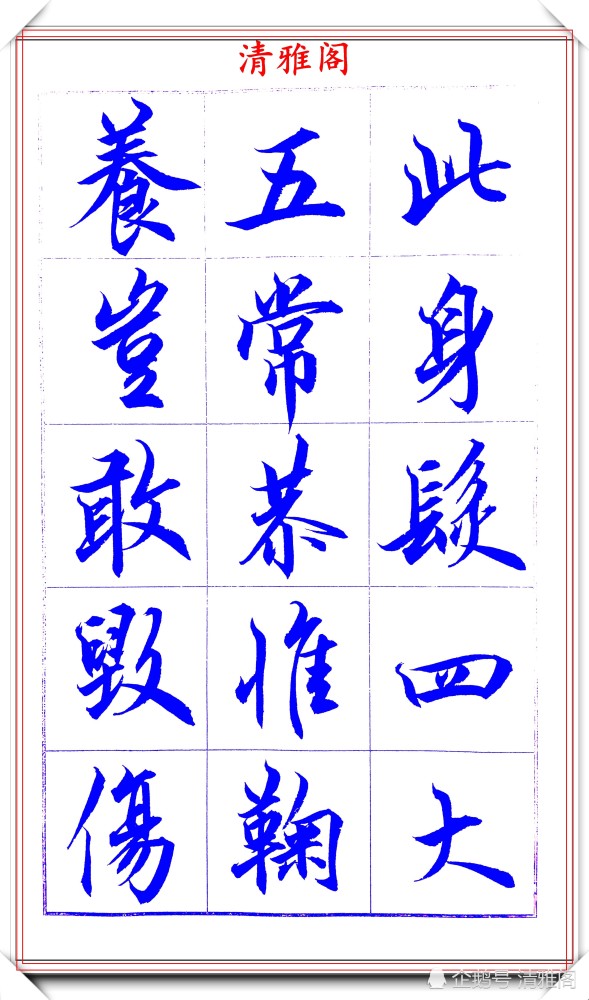 清雅阁
此身髮四大
五常恭惟鞠
養豈敢毀傷
企鹅号 清雅阁